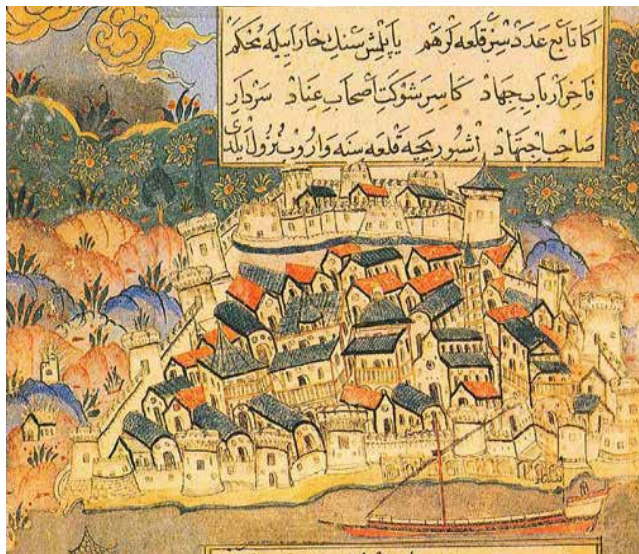 اکا تابع عدد سز قلعه لر هم یاپلمش سنك خارا ییله محکم
فاخر ارباب جهاد کاسر شوکت اصحاب عناد سردار
صاحب اجتهاد اشبو ریجه قلعه سنه واروب نزول ایلدی